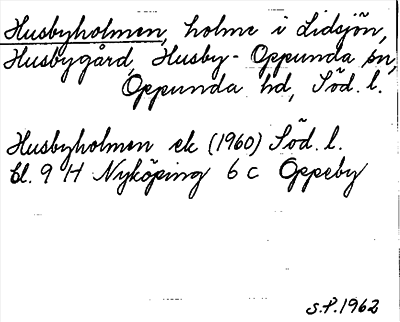 Husbyholmen, holme i Lidsjön,
Husbygård, Husby-Oppunda sn,
Oppunda hd, Söd. l.
Husbyholmen ek (1960) Söd. l.
bl. 9 H Nyköping 6 c Oppeby
S.P. 1962